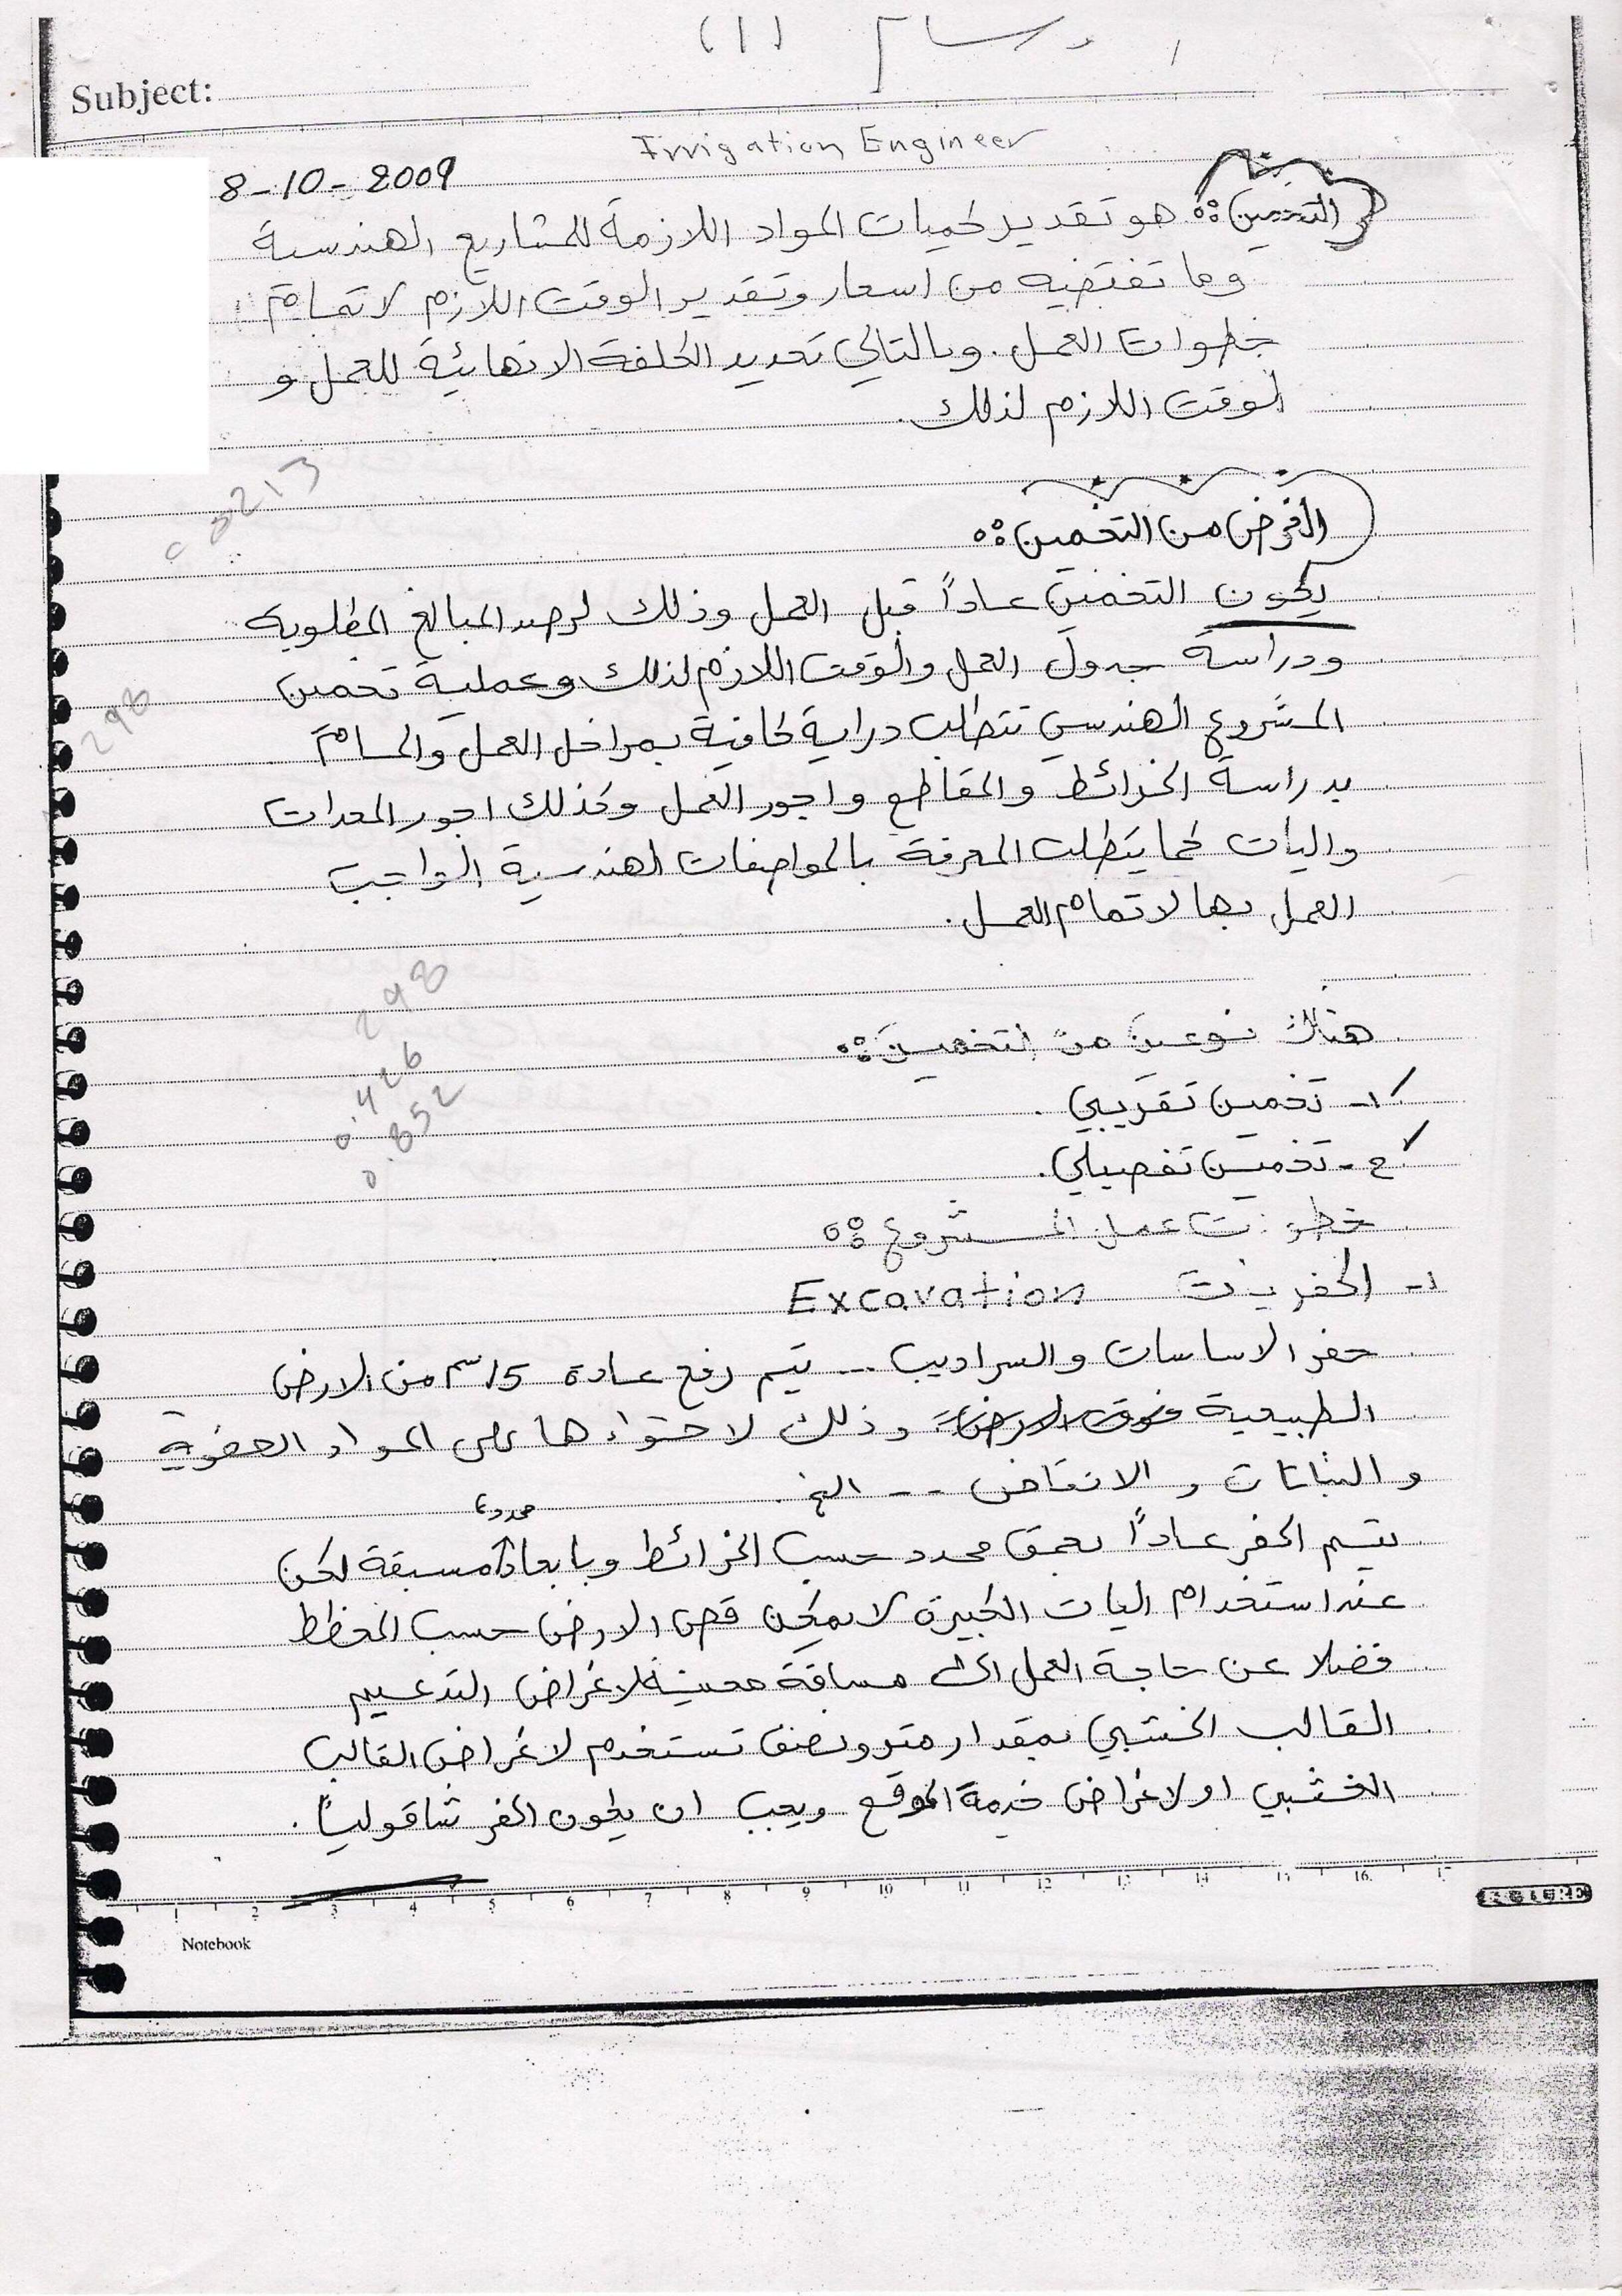 (1)
Subject:
Irrigation Engineer
8-10-2009
التخمين: هو تقدير كميات المواد اللازمة للمشاريع الهندسية
وما تقتضيه من اسعار وتقدير الوقت اللازم لاتمام
خطوات العمل. وبالتالي تحديد الكلفة الانهائية للعمل و
لوقت اللازم لذلك.
الغرض من التخمين:
يكون التخمين عاداً قبل العمل وذلك لرصد المبالغ المطلوبه
ودراسة جدول العمل والوقت اللازم لذلك وعملية تخمين
المشروع الهندسي تتطلب دراية كافية بمراحل العمل والمام
بدراسة الخرائط والمقاطع واجور العمل وكذلك اجور المعدات
واليات كما يتطلب المعرفة بالمواصفات الهندسية الواجب
العمل بها لاتمام العمل.
298
298
0.426
0.852
هناك نوعين من التخمين:
1- تخمين تقريبي.
2- تخمين تفصيلي.
خطوات عمل المشروع:
1- الحفريات Excavation
حفر الاساسات والسراديب -- يتم رفع عادة 15 سم من الارض
الطبيعية فوق الارض وذلك لاحتواءها على المواد العضوية
والنباتات والانقاض -- الخ.
محدودة
يتم الحفر عاداً بعمق محدد حسب الخرائط وبابعاد مسبقة لكن
عند استخدام اليات الكبيرة لا يمكن قص الارض حسب المخطط
فضلا عن حاجة العمل الى مسافة معينة لاغراض التدعيم
القالب الخشبي بمقدار متر ونصف تستخدم لاغراض القالب
الخشبي او لاغراض خدمة الموقع ويجب ان يكون الحفر شاقولياً.
1 2 3 4 5 6 7 8 9 10 11 12 13 14 15 16 17
Notebook